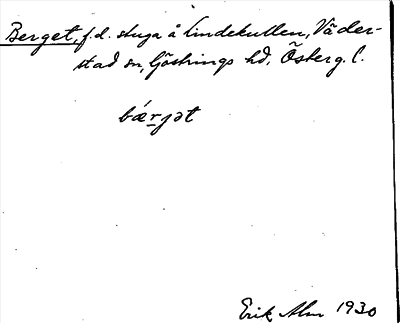 Berget, f.d. stuga å Lindekullen, Väder-
stad sn, Göstrings hd, Österg. l.
bǽrjət
Erik Alm 1930